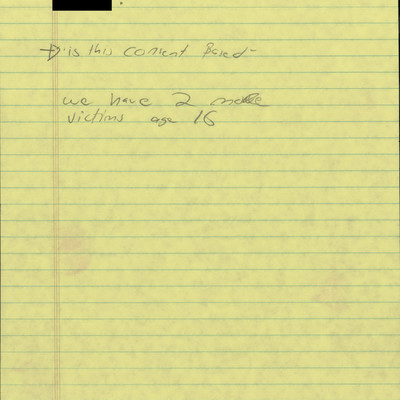 is this consent Based-
we have 2 male
victims age 16